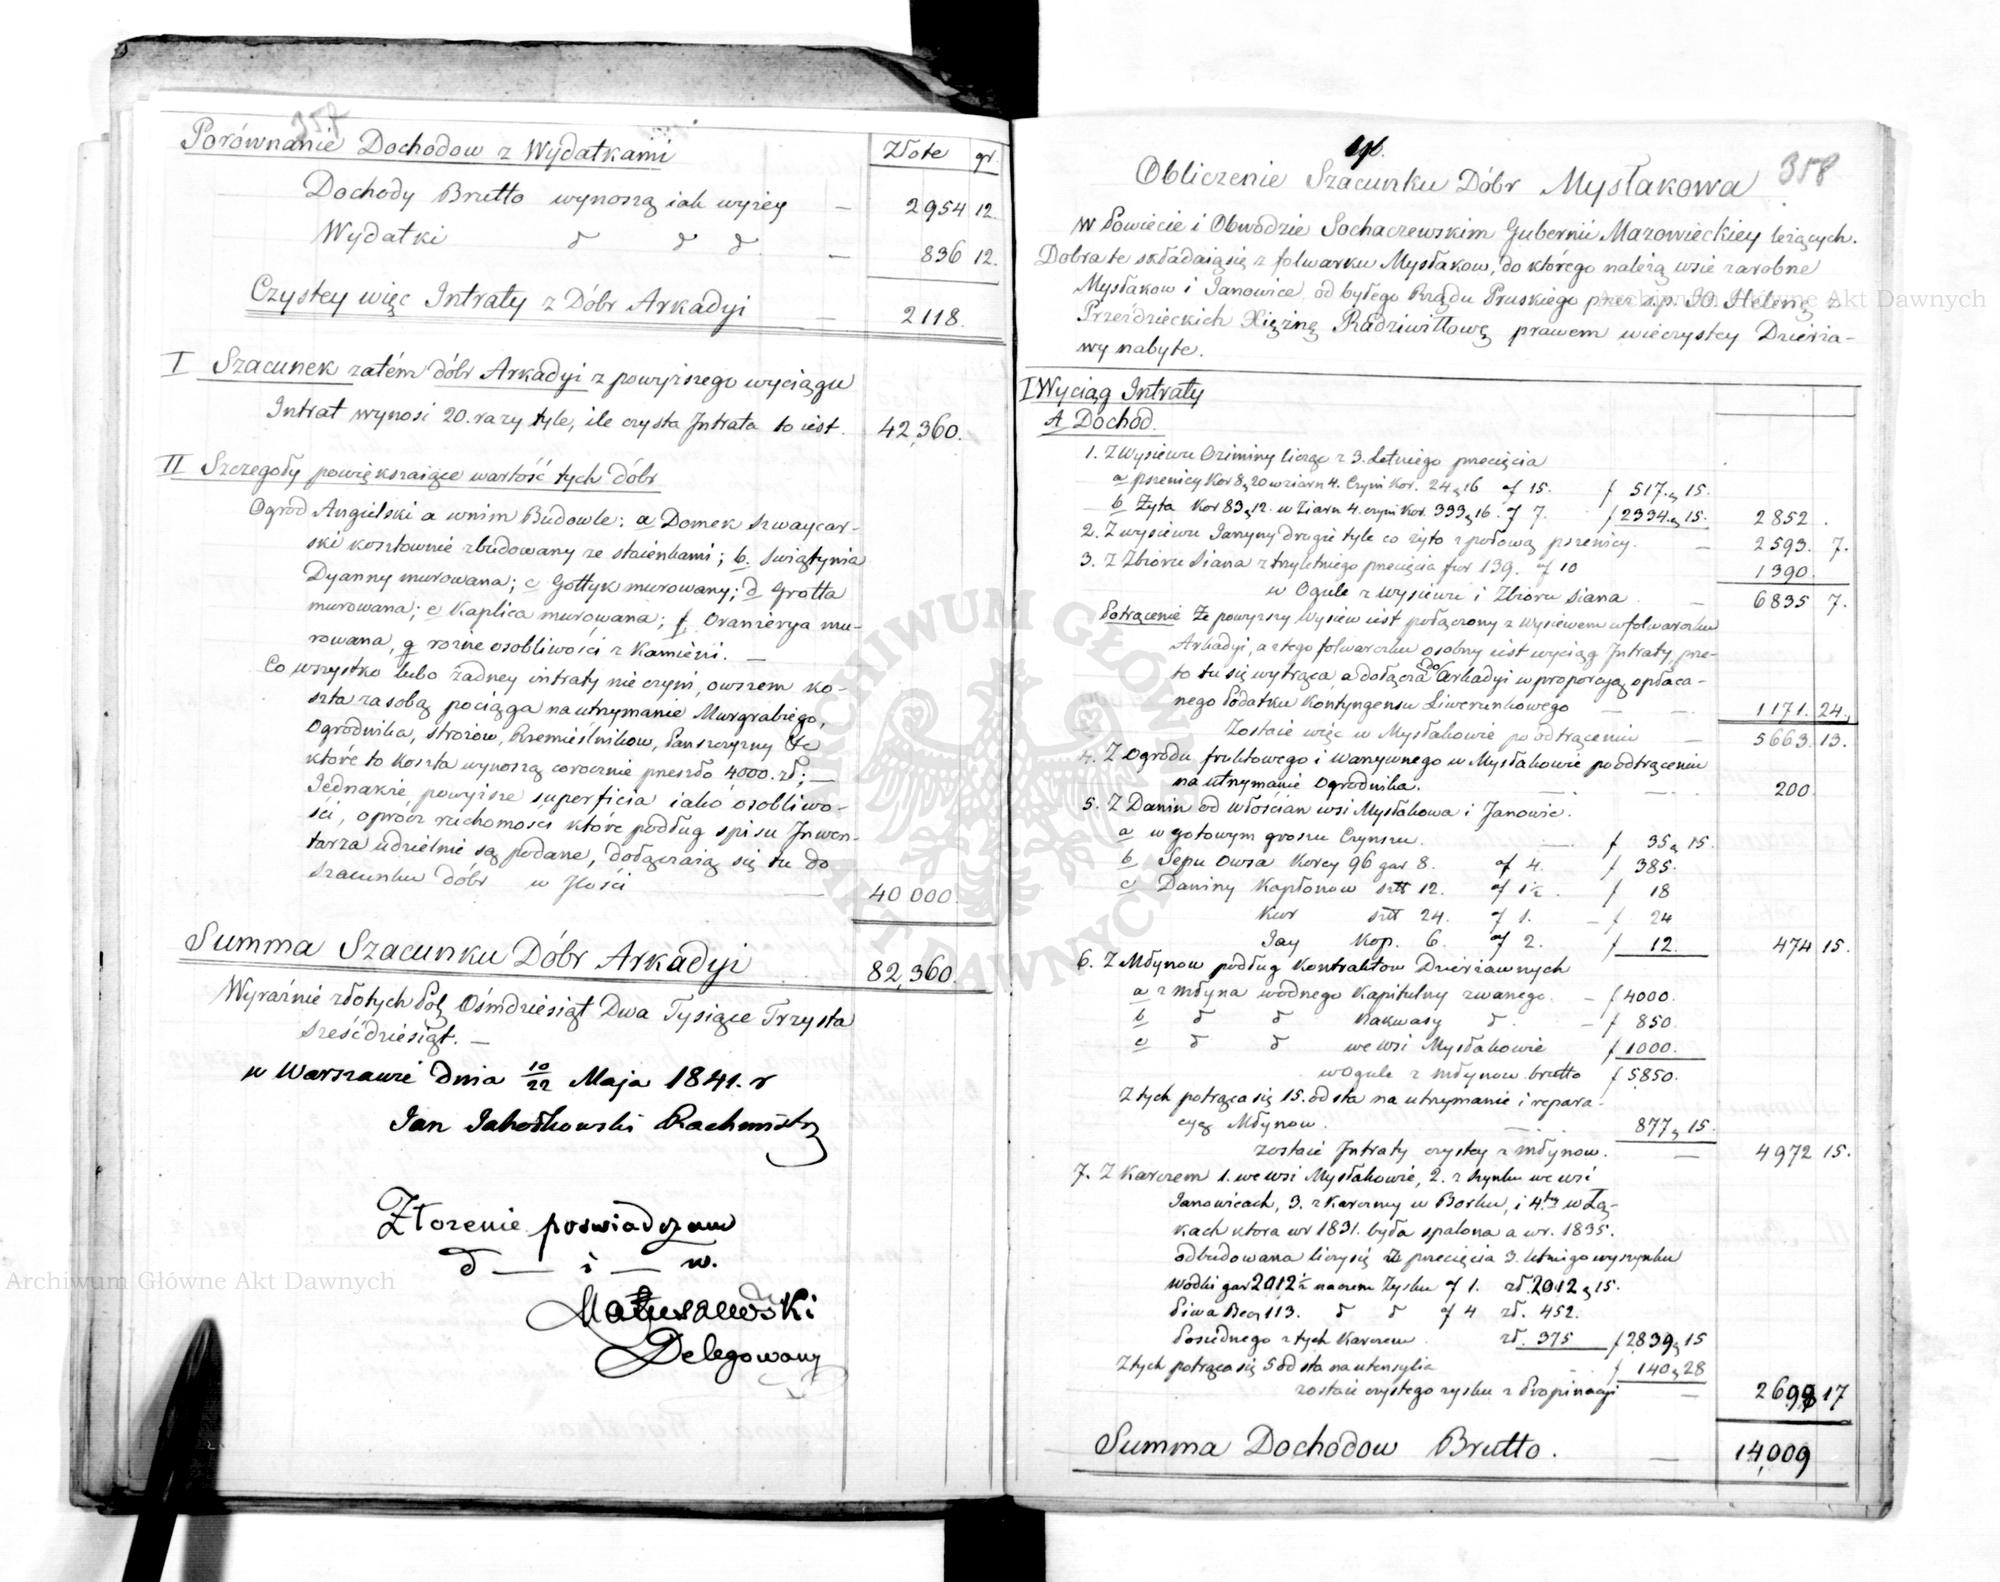 357
Porównanie Dochodow z Wydatkami Złote gr.
Dochody Brutto wynoszą iak wyżey — 2954 12.
Wydatki d d d — 836 12.
Czystey więc Intraty z Dóbr Arkadyi — 2118.
I Szacunek zatém dóbr Arkadyi z powyższego wyciągu
Intrat wynosi 20. razy tyle, ile czysta Intrata to iest. 42,360.
II Szczegoły powiększaiące wartość tych dóbr
Ogród Angielski a w nim Budowle: a Domek szwaycar-
ski kosztownie zbudowany ze staienkami; b. Swiątynia
Dyanny murowana; c Gottyk murowany; d Grotta
murowana; e Kaplica murowana; f Oranżerya mu-
rowana, g rożne osobliwości z Kamieni. —
Co wszystko lubo żadney intraty nie czyni, owszem ko-
szta za sobą pociąga na utrzymanie Murgrabiego,
Ogrodnika, strożow, Rzemieślnikow, Pańszczyzny &c
które to koszta wynoszą corocznie przeszło 4000. zł; —
Jednakże powyższe superficia iako osobliwo-
ści, oprócz ruchomości które podług spisu Inwen-
tarza udzielnie są podane, dołączaią się tu do
szacunku dóbr w Ilości — 40 000.
Summa Szacunku Dóbr Arkadyi 82,360.
Wyraźnie złotych Pol Ośmdziesiąt Dwa Tysiące Trzysta
sześćdziesiąt. —
w Warszawie dnia 10/22 Maja 1841. r
Jan Jabołkowski Rachmistrz
Złozenie poswiadczam
d — i — w.
Matuszewski
Delegowany
358
Obliczenie Szacunku Dóbr Mysłakowa
w Powiecie i Obwodzie Sochaczewskim Gubernii Mazowieckiey leżących.
Dobra te składaią się z folwarku Mysłakow, do którego należą wsie zarobne
Mysłakow i Janowice, od byłego Rządu Pruskiego przez s.p. JO. Helenę z
Przeździeckich Xiężnę Radziwiłłowę prawem wieczystey Dzierża-
wy nabyte.
I Wyciąg Intraty
A Dochod.
1. Z Wysiewu Oziminy licząc z 3. Letniego przecięcia
a pszenicy Kor 8, 20 w ziarn 4. Czyni Kor. 24, 16 af 15. f 517. 15.
b Żyta Kor 83, 12. w Ziarn 4. czyni Kor. 333, 16. af 7. f 2334. 15. 2852.
2. Z wysiewu Jarzyny drugie tyle co żyto z połową pszenicy. — 2593. 7.
3. Z Zbioru Siana z trzyletniego przecięcia fur 139. af 10 1390.
w Ogule z Wysiewu i Zbioru Siana — 6835 7.
Potrącenie Że powyższy Wysiew iest połączony z Wysiewem w folwarczku
Arkadyi, a z tego folwarczku osobny iest wyciąg Intraty, prze-
to tu się wytrąca a dołącza do Arkadyi w proporcyą opłaca-
nego Podatku Kontyngensu Liwerunkowego — — 1171. 24.
Zostaie więc w Mysłakowie po odtrąceniu — 5663. 13.
4. Z Ogrodu fruktowego i warzywnego w Mysłakowie po odtrąceniu
na utrzymanie Ogrodnika. — — 200
5. Z Danin od włościan wsi Mysłakowa i Janowic.
a w gotowym groszu Czynszu. — f 35, 15.
b Sepu Owsa Korcy 96 gar 8. af 4. f 385.
c Daniny Kapłonow sztt 12. af 1½. f 18
Kur sztt 24. af 1. — f 24
Jay Kop. 6. af 2. f 12. 474 15.
6. Z Młynow podług Kontraktow Dzierżawnych
a z młyna wodnego Kapitulny zwanego. — f 4000.
b d d Nakwasy d. — f 850.
c d d we wsi Mysłakowie f 1000.
w Ogule z Młynow brutto f 5850.
Z tych potrąca się 15. od sta na utrzymanie i repara-
cyę Młynow. — 877, 15.
zostaie Intraty czystey z Młynow. — 4972 15.
7. Z Karczem 1. we wsi Mysłakowie, 2. z Szynku we wsi
Janowicach, 3. z Karczmy w Borku, i 4.tey w Łą-
kach ktora w r 1831. była spalona a w r. 1835.
odbudowana liczy się z przecięcia 3. letniego wyszynku
wodki gar 2012½ na czem Zysku af 1. zł. 2012, 15.
Piwa Becz 113. d d af 4 zł. 452.
Posiednego z tych Karczem zł. 375 f 2839, 15
Z tych potrąca się 5 od sta na utensylia f 140, 28
zostaie czystego zysku z Propinacyi — 2698 17
Summa Dochodow Brutto. — 14,009
Archiwum Główne Akt Dawnych
Archiwum Główne Akt Dawnych
ARCHIWUM GŁÓWNE AKT DAWNYCH